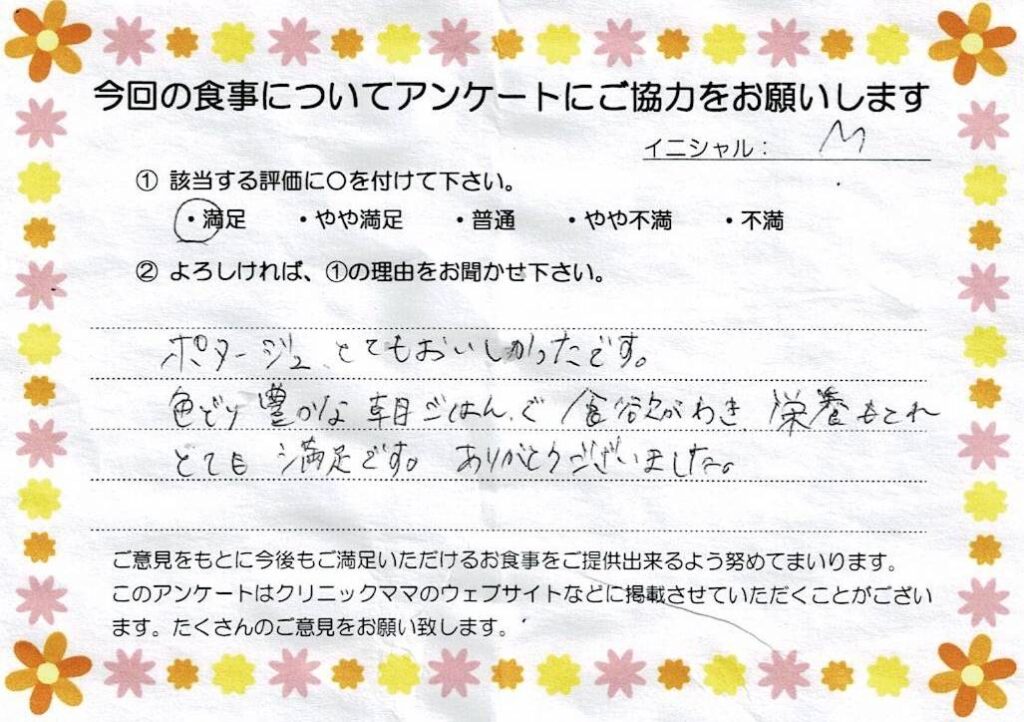 今回の食事についてアンケートにご協力をお願いします
イニシャル： M
① 該当する評価に〇を付けて下さい。
・満足 ・やや満足 ・普通 ・やや不満 ・不満
② よろしければ、①の理由をお聞かせ下さい。
ポタージュ、とてもおいしかったです。
色どり豊かな朝ごはんで食欲がわき、栄養もとれ
とても満足です。ありがとうございました。
ご意見をもとに今後もご満足いただけるお食事をご提供出来るよう努めてまいります。
このアンケートはクリニックママのウェブサイトなどに掲載させていただくことがござい
ます。たくさんのご意見をお願い致します。